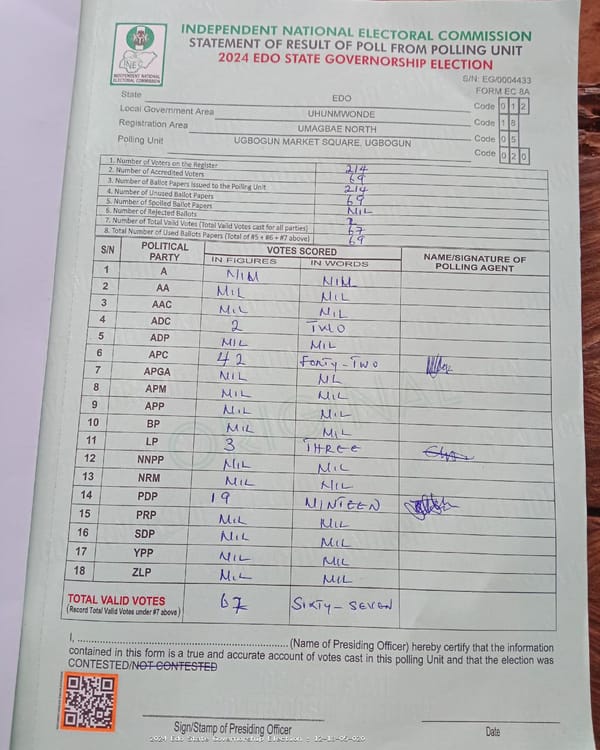 INDEPENDENT NATIONAL ELECTORAL COMMISSION
STATEMENT OF RESULT OF POLL FROM POLLING UNIT
2024 EDO STATE GOVERNORSHIP ELECTION
INEC
INDEPENDENT NATIONAL ELECTORAL COMMISSION
S/N: EG/0004433
FORM EC 8A
State EDO Code 0 1 2
Local Government Area UHUNMWONDE Code 1 8
Registration Area UMAGBAE NORTH Code 0 5
Polling Unit UGBOGUN MARKET SQUARE, UGBOGUN Code 0 2 0
1. Number of Voters on the Register 214
2. Number of Accredited Voters 69
3. Number of Ballot Papers Issued to the Polling Unit 214
4. Number of Unused Ballot Papers 69
5. Number of Spoiled Ballot Papers NIL
6. Number of Rejected Ballots 2
7. Number of Total Valid Votes (Total Valid Votes cast for all parties) 67
8. Total Number of Used Ballots Papers (Total of #5 + #6 + #7 above) 69
S/N POLITICAL PARTY VOTES SCORED NAME/SIGNATURE OF POLLING AGENT
IN FIGURES IN WORDS
1 A NIM NIM
2 AA MIL NIL
3 AAC MIL NIL
4 ADC 2 TWO
5 ADP MIL MIL
6 APC 42 FORTY-TWO
7 APGA NIL NL
8 APM MIL MIL
9 APP MIL MIL
10 BP MIL MIL
11 LP 3 THREE
12 NNPP MIL MIL
13 NRM MIL MIL
14 PDP 19 NINTEEN
15 PRP MIL MIL
16 SDP NIL MIL
17 YPP MIL MIL
18 ZLP MIL MIL
TOTAL VALID VOTES 67 SIXTY-SEVEN
(Record Total Valid Votes under #7 above)
I, ........................................................ (Name of Presiding Officer) hereby certify that the information
contained in this form is a true and accurate account of votes cast in this polling Unit and that the election was
CONTESTED/NOT CONTESTED
Sign/Stamp of Presiding Officer Date
2024 Edo State Governorship Election : 12-18-05-020
ORIGINAL